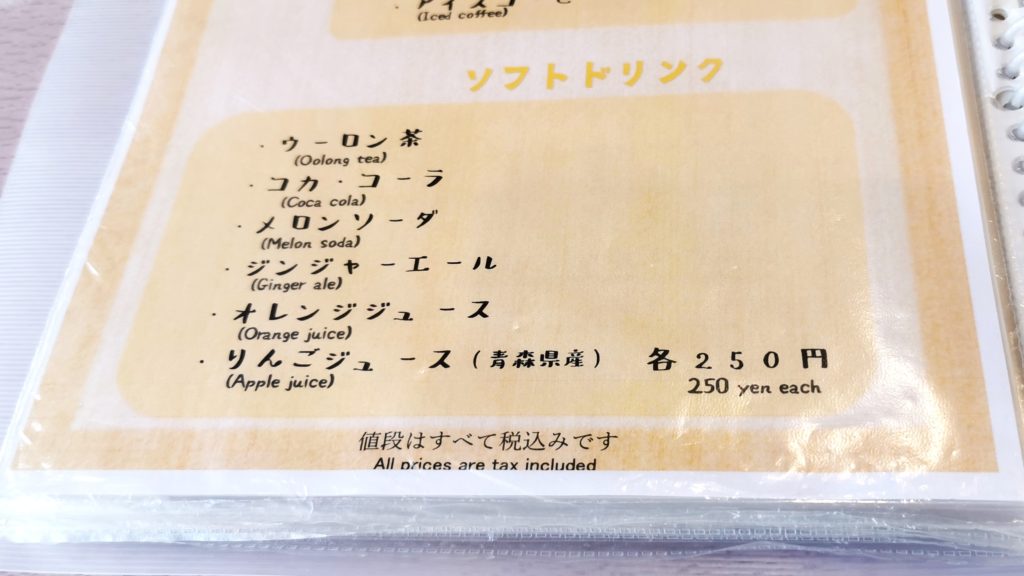 アイスコーヒー
(Iced coffee)
ソフトドリンク
・ウーロン茶
(Oolong tea)
・コカ・コーラ
(Coca cola)
・メロンソーダ
(Melon soda)
・ジンジャーエール
(Ginger ale)
・オレンジジュース
(Orange juice)
・りんごジュース(青森県産) 各250円
(Apple juice) 250 yen each
値段はすべて税込みです
All prices are tax included